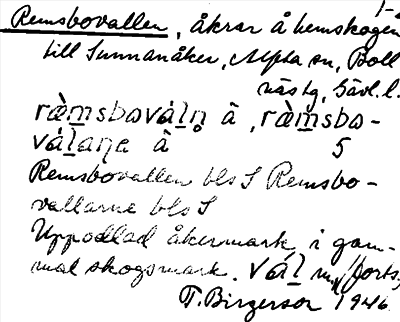 1-2
Remsbovallen, åkrar å hemskogen
till Sunnanåker, Alfta sn, Boll
näs tg, Gävl. l.
ràm̲sbová̲ln̥ å, ràm̲sbo-
vá̲lana å 5
Remsbovallen bls S Remsbo-
vallarne bls S
Uppodlad åkermark i gam-
mal skogsmark. vál m. (forts.)
T. Birgerson 1946